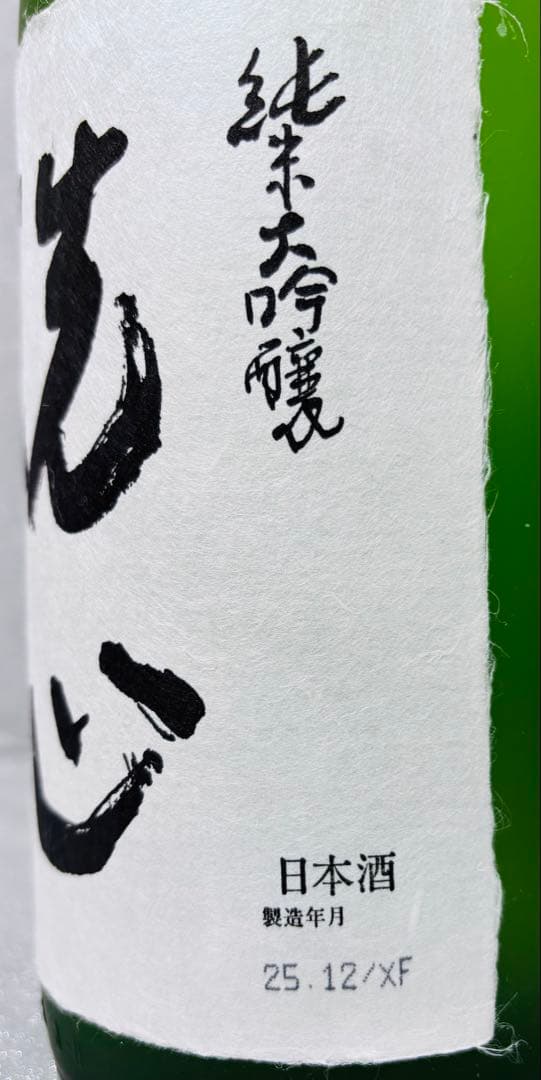 洗心
純米大吟醸
日本酒
製造年月
25.12/XF